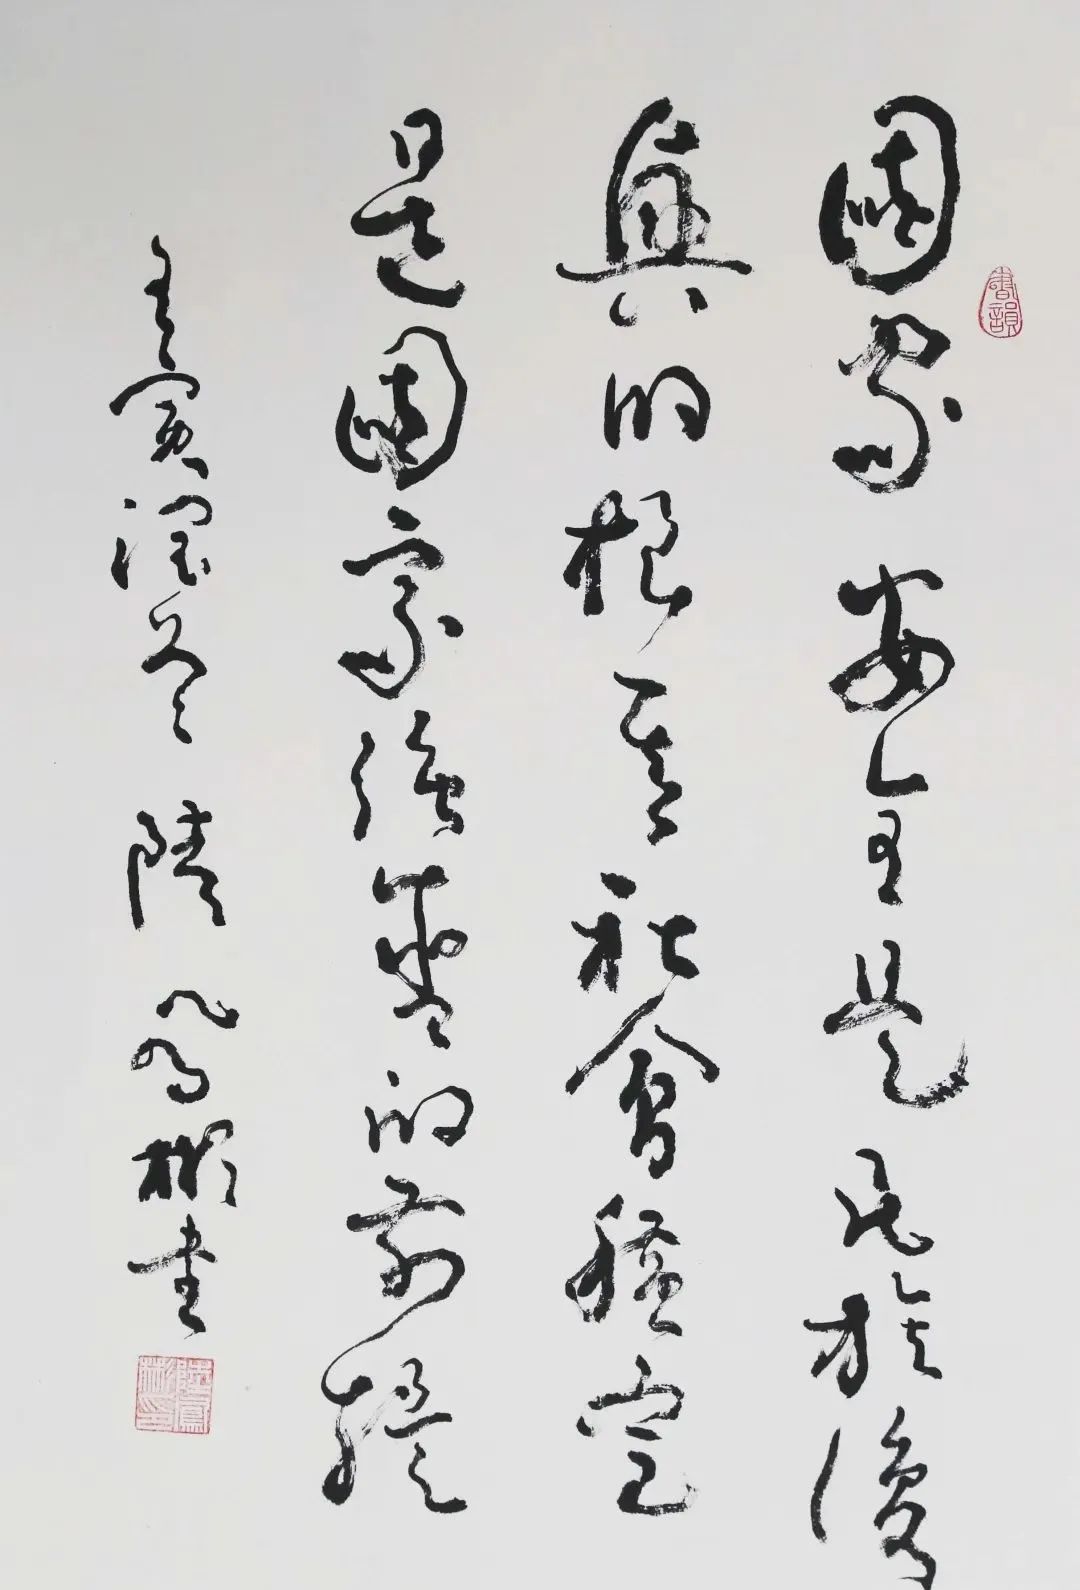 國家安全是民族復
興的根基社會穩定
是國家強盛的前提
壬寅深冬 陸鳳彬書
書韻
陸鳳彬印